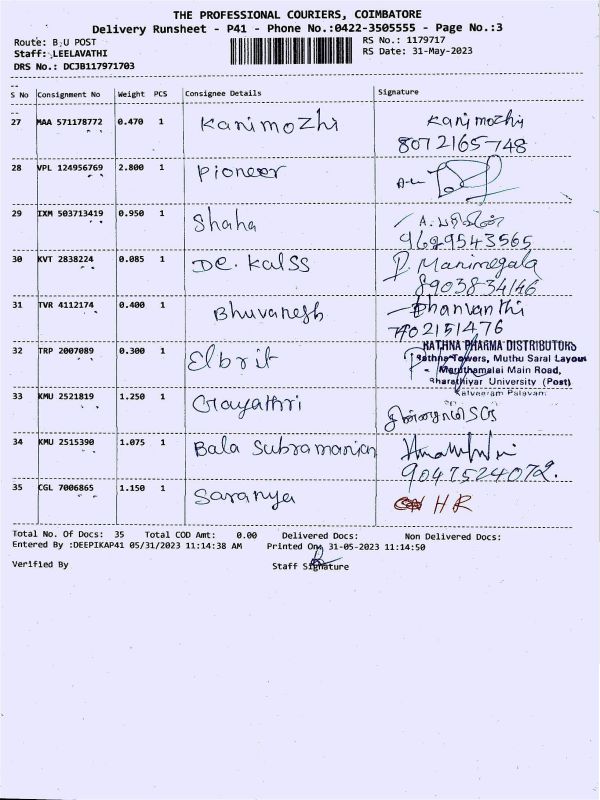 THE PROFESSIONAL COURIERS, COIMBATORE
Delivery Runsheet - P41 - Phone No.:0422-3505555 - Page No.:3
Route: B.U POST
RS No.: 1179717
Staff: LEELAVATHI
RS Date: 31-May-2023
DRS No.: DCJB117971703
S No Consignment No Weight PCS Consignee Details Signature
27 MAA 571178772 0.470 1 Kanimozhi Kanimozhi
8072165748
28 VPL 124956769 2.800 1 Pioneer
29 IXM 503713419 0.950 1 Shaha A.
9629543565
30 KVT 2838224 0.085 1 De. Kalss P. Manimegala
8903834146
31 TVR 4112174 0.400 1 Bhuvanesh Dhanvanthi
7402151476
32 TRP 2007089 0.300 1 Elbrit RATHNA PHARMA DISTRIBUTORS
Rathna Towers, Muthu Saral Layout
Maruthamalai Main Road,
Bharathiyar University (Post)
Kalveeram Palayam
33 KMU 2521819 1.250 1 Gayathri
34 KMU 2515390 1.075 1 Bala Subramanian
9047524072.
35 CGL 7006865 1.150 1 Saranya HR
Total No. Of Docs: 35 Total COD Amt: 0.00 Delivered Docs: Non Delivered Docs:
Entered By :DEEPIKAP41 05/31/2023 11:14:38 AM Printed On: 31-05-2023 11:14:50
Verified By Staff Signature